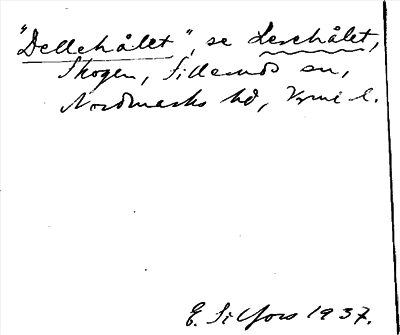 "Dellehålet", se Lerehålet,
Skogen, Sillerud sn,
Nordmarks hd, Vrml l.
E. Silfors 1937.